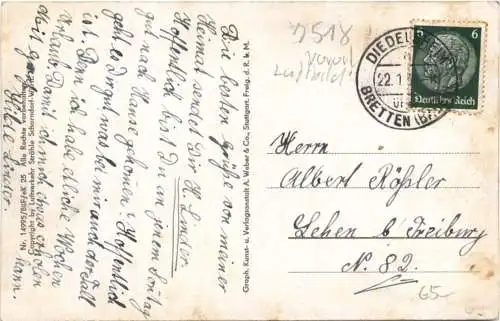 Die besten Grüße von meiner
Heimat sendet Dir H. Linder.
Hoffentlich bist Du an jenem Sonntag
nach Hause gekommen. Hoffentlich
geht es Dir gut was bei mir auch der Fall
ist. Denn ich habe etliche Wochen
Urlaub. Damit ich mich etwas erholen
kann.
Mit
Linder.
Nr. 14995/BUF/eK 25 Alle Rechte vorbehalten
Copyright by Luftverkehr Strähle Schorndorf
Graph. Kunst- u. Verlagsanstalt A. Weber & Co., Stuttgart. Freig. d. R. L. M.
7518
DIEDELSHEIM
22.1
BRETTEN (BADEN)
6
6
Deutsches Reich
Herrn
Albert Rößler
Lehen bei Freiburg
N. 82.
65-